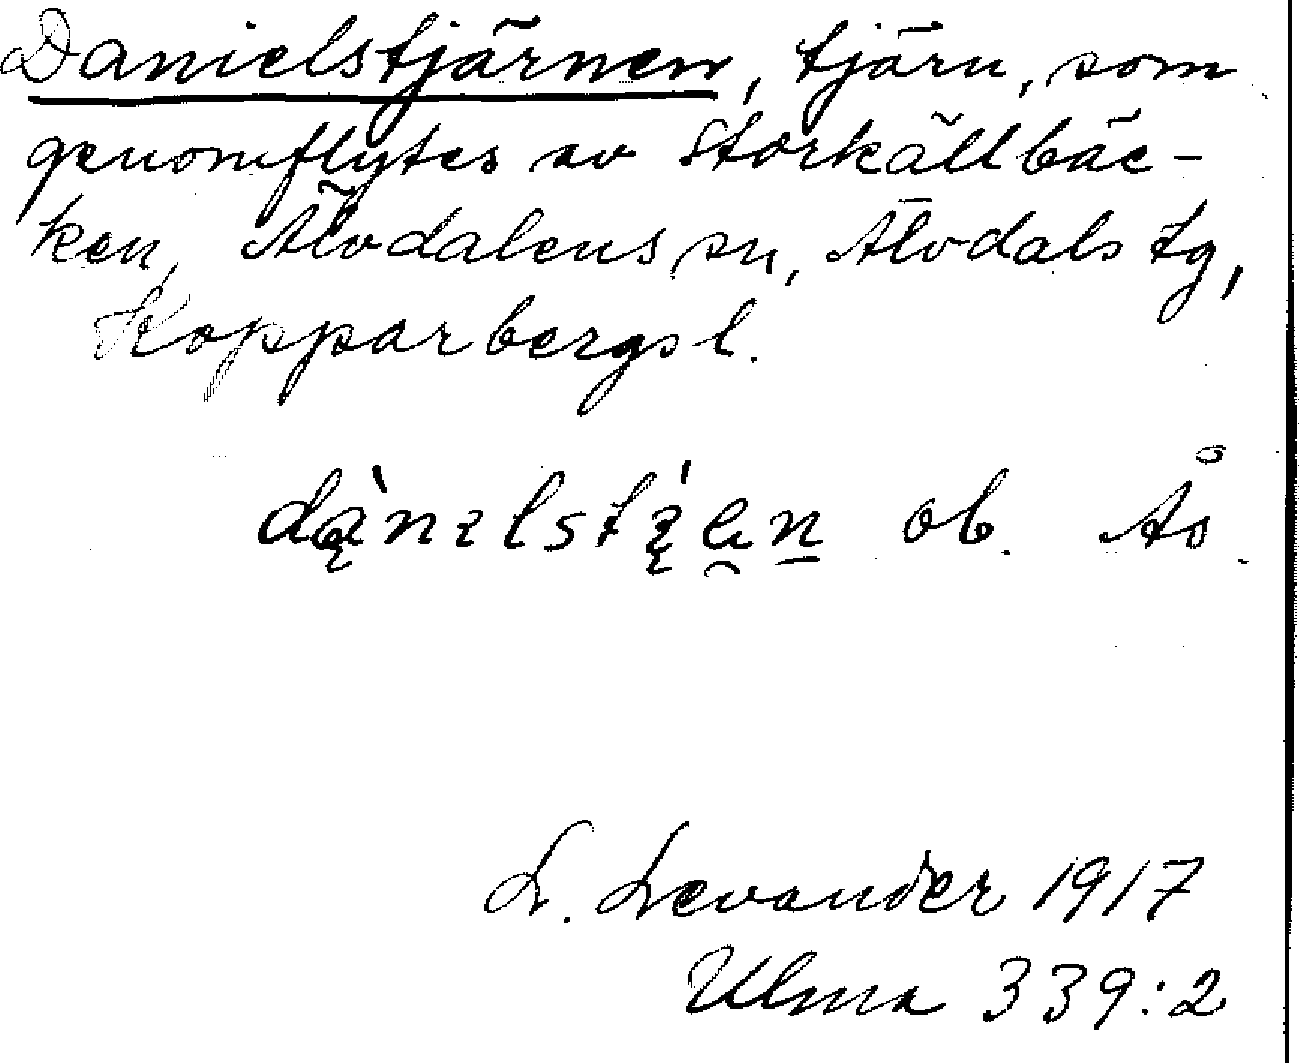 Danielstjärnen, tjärn, som
genomflytes av Storkällbäc-
ken, Älvdalens sn, Älvdals tg,
Kopparbergs l.
ob. Åo.
L. Levander 1917
Ulma 339:2